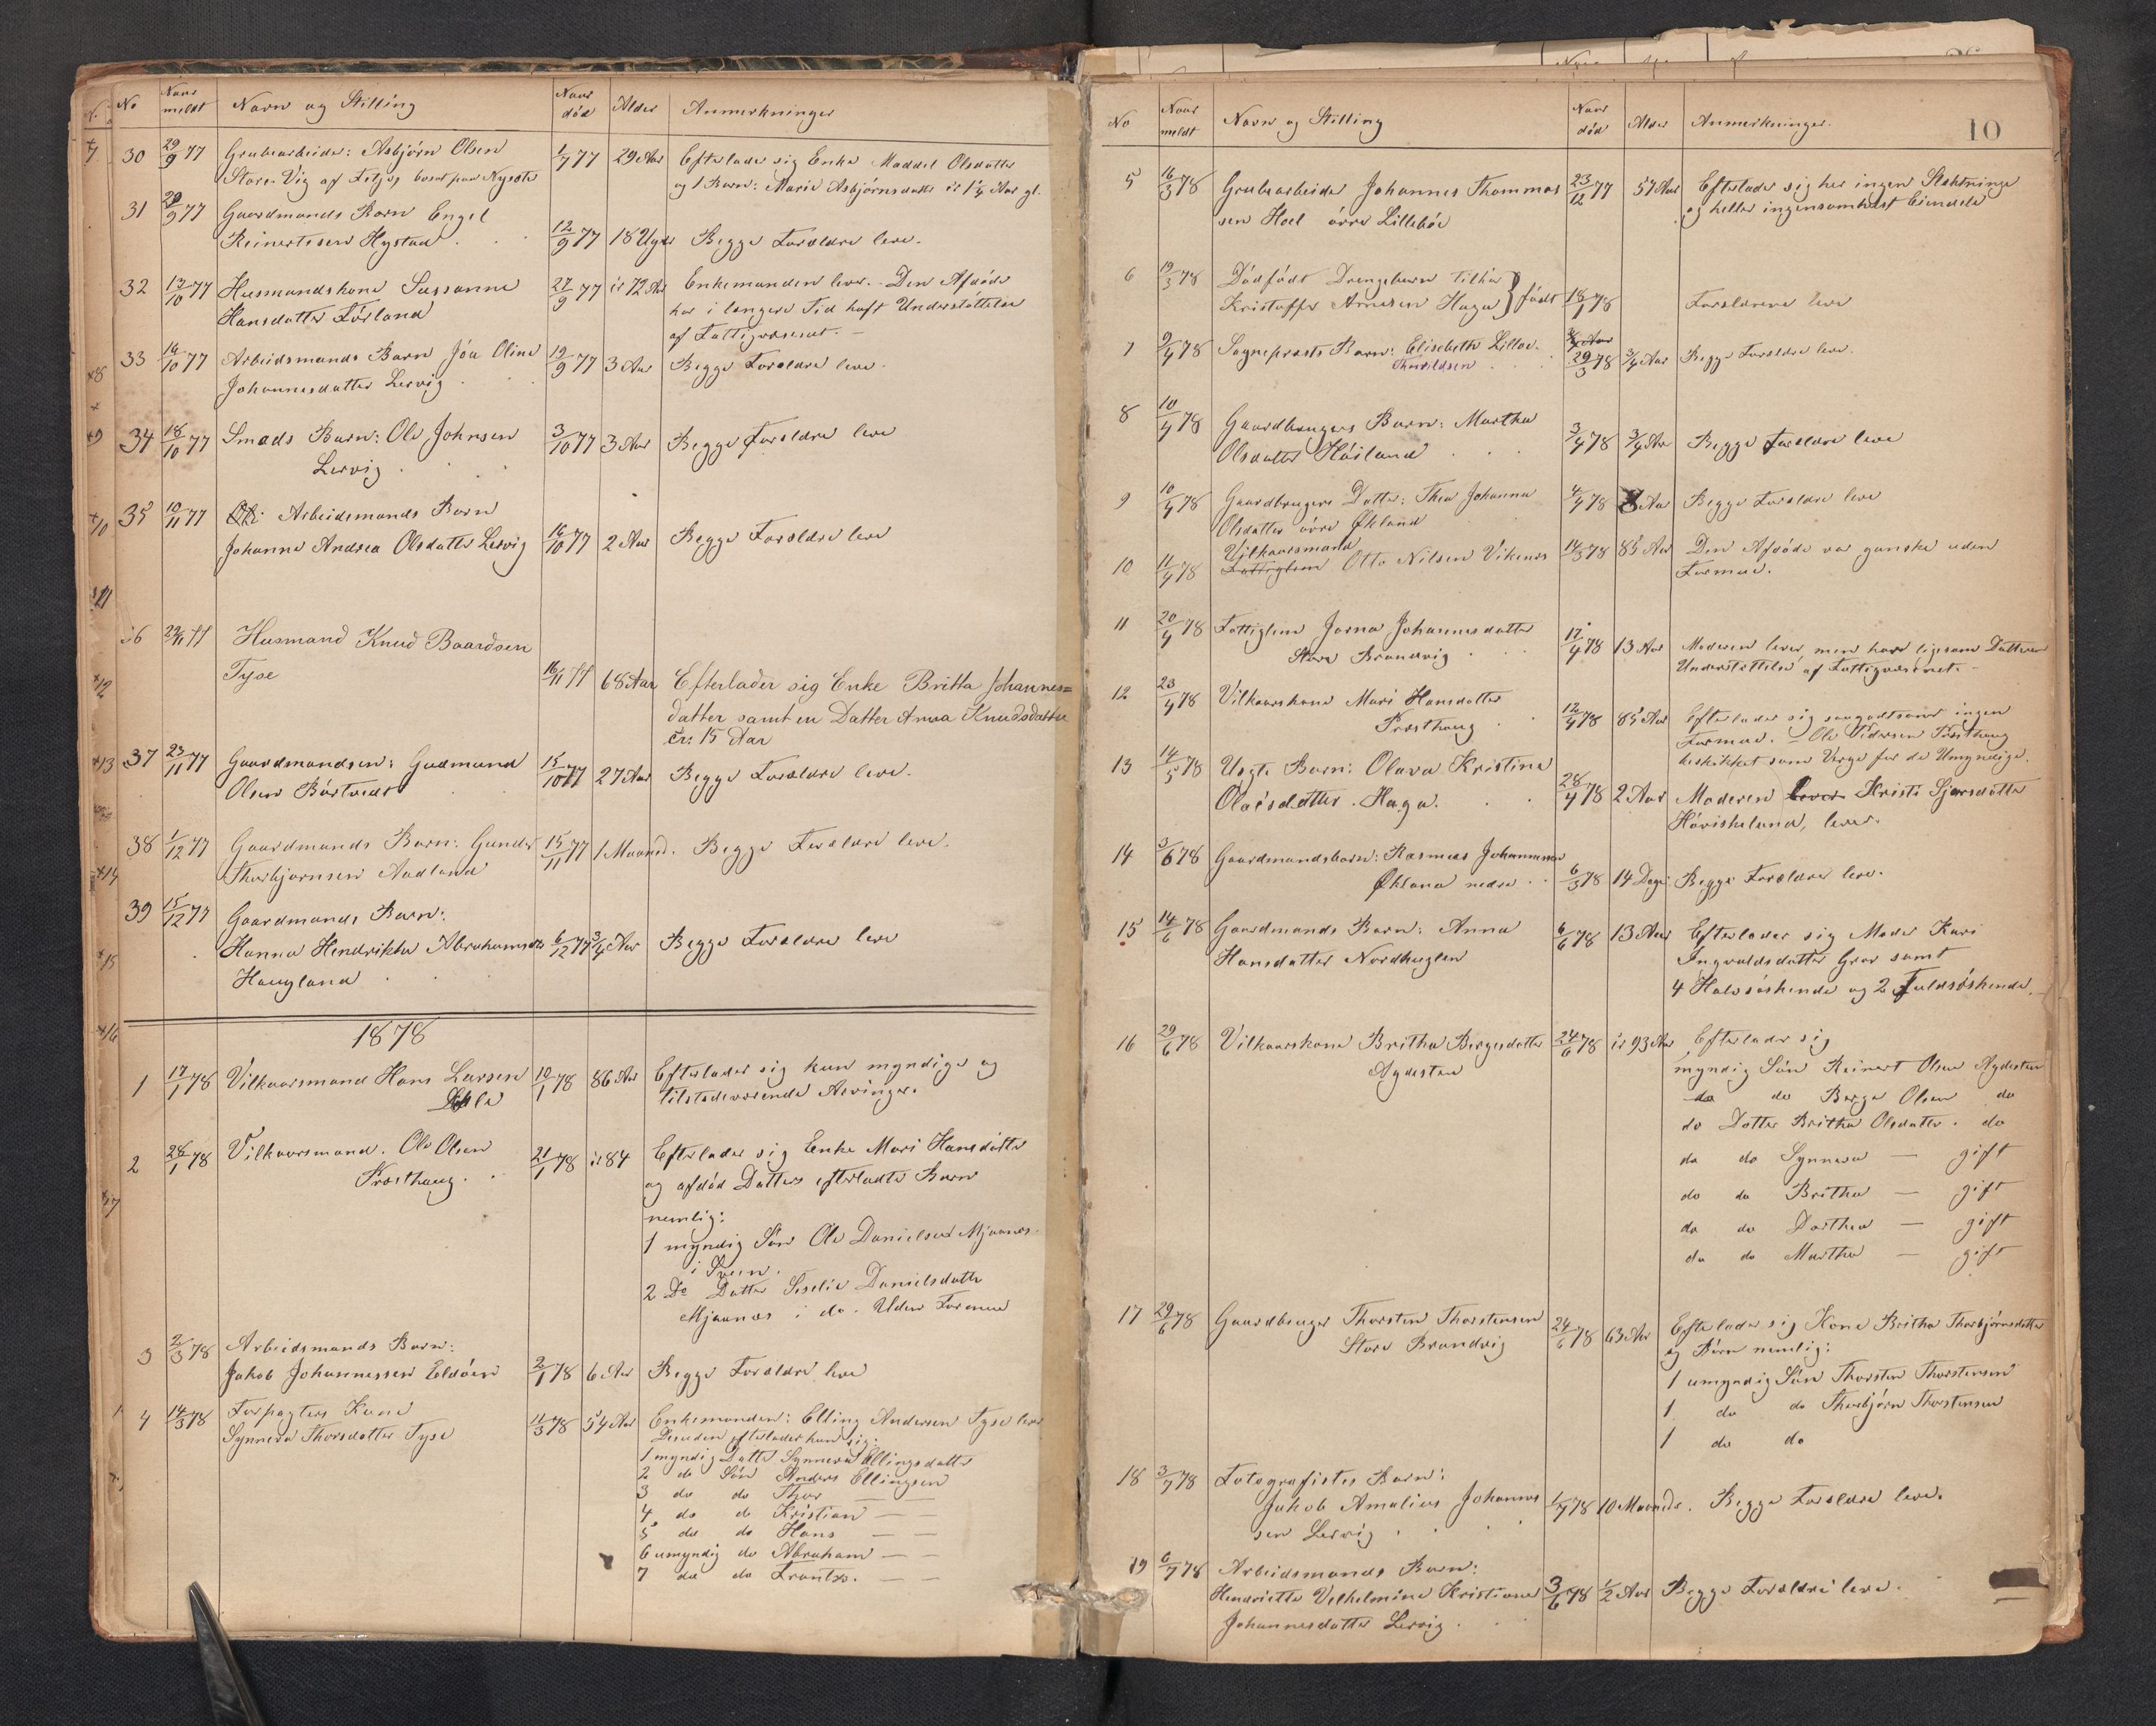 No Naar meldt Navn og Stilling Naar død Alder Anmerkninger
30 29/9 77 Grubearbeider: Asbjørn Olsen 1/7 77 29 Aar Efterlader sig Enke Maddel Olsdatter
Store Vig af bosat paa Nysæter og 1 Barn: Marie Asbjørnsdatter er 1 1/4 Aar gl.
31 29/9 77 Gaardmands Barn Engel
Reinertsen Hystad 12/9 77 18 Uger Begge Forældre leve.
32 13/10 77 Husmandskone Sussanne 27/9 77 er 72 Aar Enkemanden lever. Den Afdøde
Hansdatter Førland har i længere Tid haft Understøttelse
af Fattigvæsenet.
33 14/10 77 Arbeidsmands Barn Jøa Oline 19/9 77 3 Aar Begge Forældre leve.
Johannesdatter Lervig
34 18/10 77 Smeds Barn: Ole Johnsen 3/10 77 3 Aar Begge Forældre leve
Lervig
35 10/11 77 Arbeidsmands Barn
Johanne Andrea Olsdatter Lervig 16/10 77 2 Aar Begge Forældre leve
36 22/11 77 Husmand Knud Baardsen
Tyse 16/11 77 68 Aar Efterlader sig Enke Britta Johannes=
datter samt en Datter Anna Knudsdatter
er: 15 Aar
37 23/11 77 Gaardmandsøn: Gudmund 15/10 77 27 Aar Begge Forældre leve.
Olsen Børtveit
38 1/12 77 Gaardmands Barn: Gunder 15/11 77 1 Maaned. Begge Forældre leve.
Thorbjørnsen Aadland
39 15/12 77 Gaardmands Barn:
Hanna Hendrikka Abrahamsdtr 6/12 77 3/4 Aar Begge Forældre leve
Haugland
1878
1 17/1 78 Vilkaarsmand Hans Larsen 10/1 78 86 Aar Efterlader sig kun myndige og
tilstedeværende Arvinger.
2 28/1 78 Vilkaarsmand. Ole Olsen 21/1 78 er 84 Efterlader sig Enke Mari Hansdatter
Præsthaug. og afdød Datters efterladte Børn
nemlig:
1 myndig Søn Ole Danielsen Mjaanæs
i Sveen.
2 Do Datter Siselie Danielsdatter
Mjaanæs i do. Uden Formue
3 2/3 78 Arbeidsmands Barn:
Jakob Johannessen Eldøen 2/1 78 6 Aar Begge Forældre leve
4 14/3 78 Forpagters Kone 11/3 78 54 Aar Enkemanden: Elling Andersen Tyse lever
Synneva Thorsdatter Tyse Desuden efterlader hun sig:
1 myndig Datter Synneva Ellingsdatter
2 do Søn Anders Ellingsen
3 do do Thor — —
4 do do Kristian — —
5 do do Hans — —
6 umyndig do Abraham — —
7 do do Frants. — —
10
No Naar meldt Navn og Stilling Naar død Alder Anmerkninger.
5 16/3 78 Grubearbeider Johannes Thommas 23/12 77 57 Aar Efterlader sig her ingen Slektninge
sen Hoel øvre Lillebøe og heller ingensomhelst Eiendele
6 19/3 78 Dødfødt Drengebarn tilhør
Kristoffer Arnesen Haga } født 18/1 78 Forældrene leve
7 9/4 78 Sogneprests Barn: Elisebeth Lilloe 29/3 78 3/4 Aar Begge Forældre leve.
Thorildsen
8 10/4 78 Gaardbrugers Barn: Martha
Olsdatter Høiland 3/4 78 3/4 Aar Begge Forældre leve
9 10/4 78 Gaardbrugers Datter: Thea Johanna 4/4 78 8 Aar Begge Forældre leve
Olsdatter øvre Økland
Vilkaarsmand
10 11/4 78 Fattiglem Otto Nilsen Vikenes 14/3 78 85 Aar Den Afdøde var ganske uden
Formue.
11 20/4 78 Fattiglem Jorna Johannesdatter
Store Brandvig 17/4 78 13 Aar Moderen lever, men har ligesom Datteren
Understøttelse af Fattigvæsenet.
12 23/4 78 Vilkaarskone Mari Hansdatter
Præsthaug 12/4 78 85 Aar Efterlader sig saagodtsom ingen
Formue. – Ole Præsthaug
beskikket som Verge for de Umyndige.
13 14/5 78 Uegte Barn: Olava Kristina
Olaisdatter. Haga. 28/4 78 2 Aar Moderen lever Kristi Sjursdatter
Høviskeland, lever.
14 3/6 78 Gaardmandsbarn: Rasmus Johannessen
Økland nedre 6/3 78 14 Dage Begge Forældre leve.
15 14/6 78 Gaardmands Barn: Anna 6/6 78 13 Aar Efterlader sig Moder Kari
Hansdatter Nordhuglen Ingvaldsdatter Grov samt
4 Halvsøskende og 2 Fuldsøskende.
16 29/6 78 Vilkaarskone Britha Børgesdatter 24/6 78 er 93 Aar Efterlader sig
Agdesten myndig Søn Reinert Olsen Agdesten
do do Børge Olsen do
do Datter Britha Olsdatter. do
do do Synneva — gift
do do Britha — gift
do do Dorthea — gift
do do Martha — gift
17 29/6 78 Gaardbruger Thorsten Thorstensen 24/6 78 63 Aar Efterlader sig Kone Britha Thorbjørnsdatter
Store Brandvig og Børn nemlig:
1 umyndig Søn Thorsten Thorstensen
1 do do Thorbjørn Thorstensen
1 do do
18 3/7 78 Fotografistes Barn:
Jakob Amalius Johannes 1/7 78 10 Maaneder. Begge Forældre leve.
sen Lervig
19 6/7 78 Arbeidsmands Barn:
Henriette Vilhelmine Kristiane 3/6 78 1/2 Aar Begge Forældre leve.
Johannesdatter Lervig